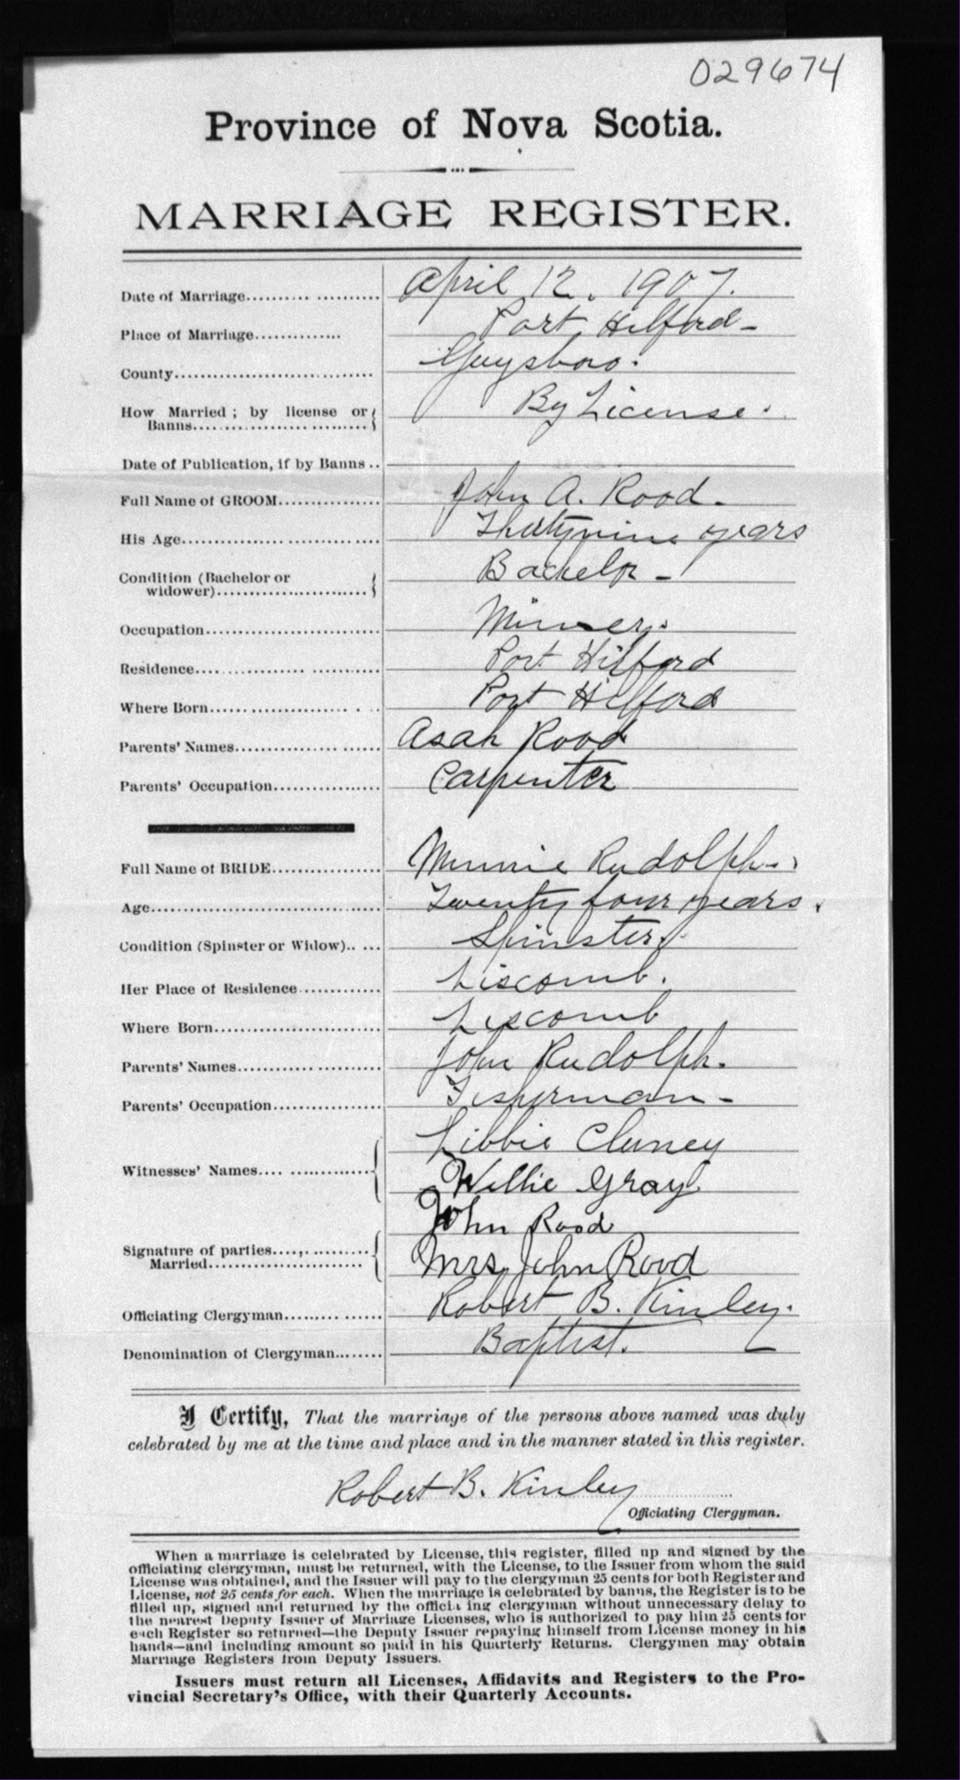 029674
Province of Nova Scotia.
MARRIAGE REGISTER.
Date of Marriage.......... .......... April 12. 1907.
Place of Marriage............. Port Hilford-
County............................ Guysboro.
How Married ; by license or By License.
Banns............................
Date of Publication, if by Banns ..
Full Name of GROOM............... John A. Rood.
His Age............................. Thirtynine years
Condition (Bachelor or Bachelor -
widower)........................
Occupation......................... Minner.
Residence........................... Port Hilford
Where Born.................... . .. Port Hilford
Parents' Names.............. ...... Asah Rood
Parents' Occupation................ Carpenter
Full Name of BRIDE................ Minnie Rudolph.
Age................................. Twenty four years.
Condition (Spinster or Widow).. ... Spinster.
Her Place of Residence............ Liscomb.
Where Born........................ Liscomb
Parents' Names..................... John Rudolph.
Parents' Occupation................ Fisherman-
Libbie Cluney
Witnesses' Names.... ............. Willie Gray
John Rood
Signature of parties....,..........
Married....................... Mrs John Rood
Officiating Clergyman......... ...... Robert B. Kinley.
Denomination of Clergyman........ Baptist.
I Certify, That the marriage of the persons above named was duly
celebrated by me at the time and place and in the manner stated in this register.
Robert B. Kinley
Officiating Clergyman.
When a marriage is celebrated by License, this register, filled up and signed by the
officiating clergyman, must be returned, with the License, to the Issuer from whom the said
License was obtained, and the Issuer will pay to the clergyman 25 cents for both Register and
License, not 25 cents for each. When the marriage is celebrated by banns, the Register is to be
filled up, signed and returned by the officiating clergyman without unnecessary delay to
the nearest Deputy Issuer of Marriage Licenses, who is authorized to pay him 25 cents for
each Register so returned—the Deputy Issuer repaying himself from License money in his
hands—and including amount so paid in his Quarterly Returns. Clergymen may obtain
Marriage Registers from Deputy Issuers.
Issuers must return all Licenses, Affidavits and Registers to the Pro-
vincial Secretary's Office, with their Quarterly Accounts.